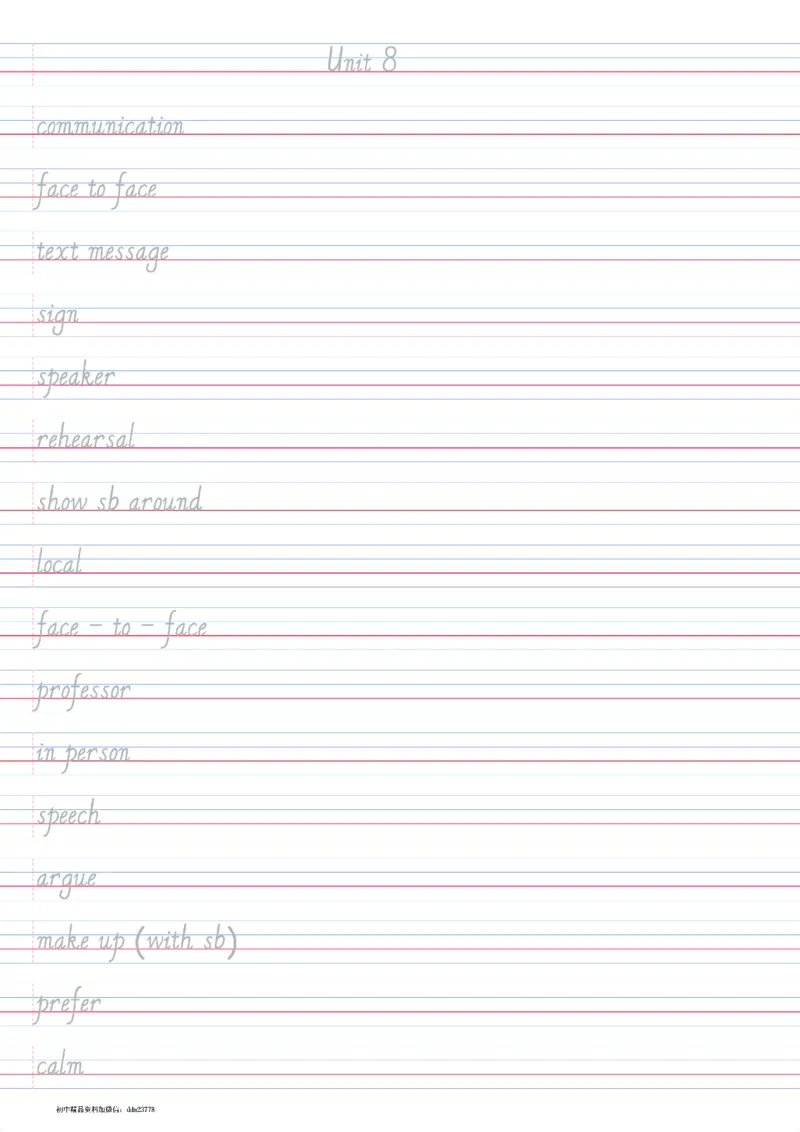 Unit 8
communication
face to face
text message
sign
speaker
rehearsal
show sb around
local
face - to - face
professor
in person
speech
argue
make up (with sb)
prefer
calm
初中精品资料加微信：ddm23778